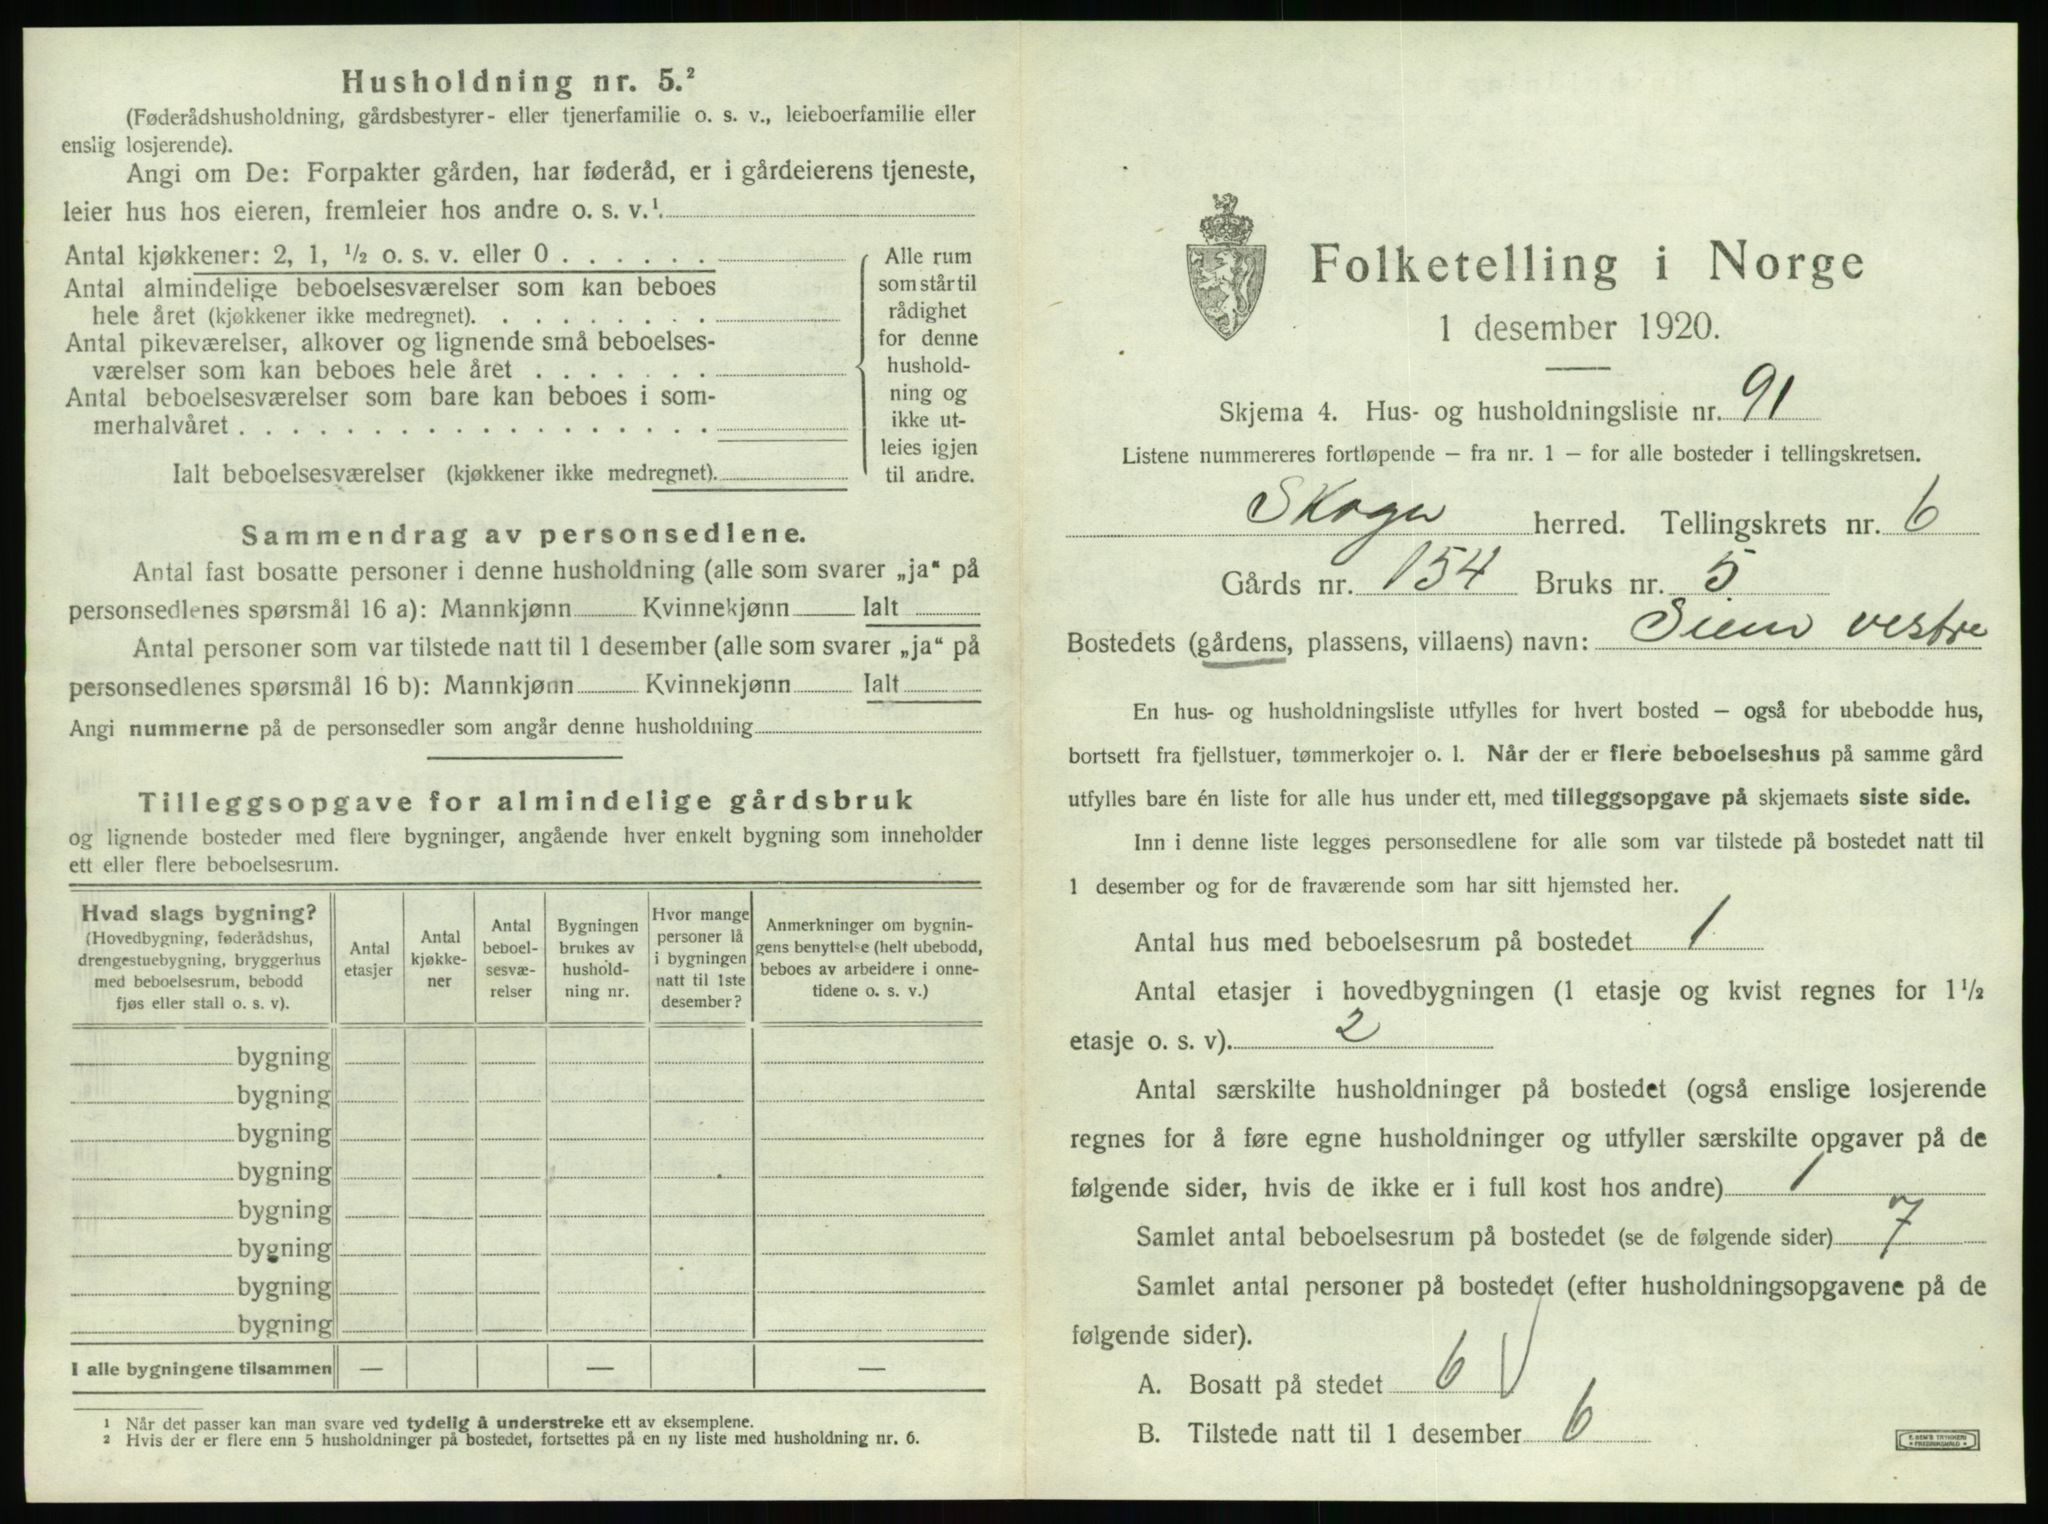 Husholdning nr. 5.²
(Føderådshusholdning, gårdsbestyrer- eller tjenerfamilie o. s. v., leieboerfamilie eller
enslig losjerende).
Angi om De: Forpakter gården, har føderåd, er i gårdeierens tjeneste,
leier hus hos eieren, fremleier hos andre o. s. v.¹
Antal kjøkkener: 2, 1, ½ o. s. v. eller 0 . . . . . .
Antal almindelige beboelsesværelser som kan beboes
hele året (kjøkkener ikke medregnet). . . . . . . . .
Antal pikeværelser, alkover og lignende små beboelses-
værelser som kan beboes hele året . . . . . . .
Antal beboelsesværelser som bare kan beboes i som-
merhalvåret . . . . . . . . . . . . . . . . . .
Ialt beboelsesværelser (kjøkkener ikke medregnet).
Alle rum
som står til
rådighet
for denne
hushold-
ning og
ikke ut-
leies igjen
til andre.
Sammendrag av personsedlene.
Antal fast bosatte personer i denne husholdning (alle som svarer „ja“ på
personsedlenes spørsmål 16 a): Mannkjønn Kvinnekjønn Ialt
Antal personer som var tilstede natt til 1 desember (alle som svarer „ja“ på
personsedlenes spørsmål 16 b): Mannkjønn Kvinnekjønn Ialt
Angi nummerne på de personsedler som angår denne husholdning
Tilleggsopgave for almindelige gårdsbruk
og lignende bosteder med flere bygninger, angående hver enkelt bygning som inneholder
ett eller flere beboelsesrum.
Hvad slags bygning?
(Hovedbygning, føderådshus,
drengestuebygning, bryggerhus
med beboelsesrum, bebodd
fjøs eller stall o. s. v).
Antal
etasjer
Antal
kjøkke-
ner
Antal
beboel-
sesvæ-
relser
Bygningen
brukes av
hushold-
ning nr.
Hvor mange
personer lå
i bygningen
natt til 1ste
desember?
Anmerkninger om bygnin-
gens benyttelse (helt ubebodd,
beboes av arbeidere i onne-
tidene o. s. v.)
bygning
bygning
bygning
bygning
bygning
bygning
bygning
bygning
I alle bygningene tilsammen — — —
¹ Når det passer kan man svare ved tydelig å understreke ett av eksemplene.
² Hvis der er flere enn 5 husholdninger på bostedet, fortsettes på en ny liste med husholdning nr. 6.
Folketelling i Norge
1 desember 1920.
Skjema 4. Hus- og husholdningsliste nr. 91
Listene nummereres fortløpende – fra nr. 1 – for alle bosteder i tellingskretsen.
Skoger herred. Tellingskrets nr. 6
Gårds nr. 154 Bruks nr. 5
Bostedets (gårdens, plassens, villaens) navn: Siem vestre
En hus- og husholdningsliste utfylles for hvert bosted – også for ubebodde hus,
bortsett fra fjellstuer, tømmerkojer o. l. Når der er flere beboelseshus på samme gård
utfylles bare én liste for alle hus under ett, med tilleggsopgave på skjemaets siste side.
Inn i denne liste legges personsedlene for alle som var tilstede på bostedet natt til
1 desember og for de fraværende som har sitt hjemsted her.
Antal hus med beboelsesrum på bostedet 1
Antal etasjer i hovedbygningen (1 etasje og kvist regnes for 1½
etasje o. s. v). 2
Antal særskilte husholdninger på bostedet (også enslige losjerende
regnes for å føre egne husholdninger og utfyller særskilte opgaver på de
følgende sider, hvis de ikke er i full kost hos andre) 1
Samlet antal beboelsesrum på bostedet (se de følgende sider) 7
Samlet antal personer på bostedet (efter husholdningsopgavene på de
følgende sider).
A. Bosatt på stedet 6 V
B. Tilstede natt til 1 desember 6